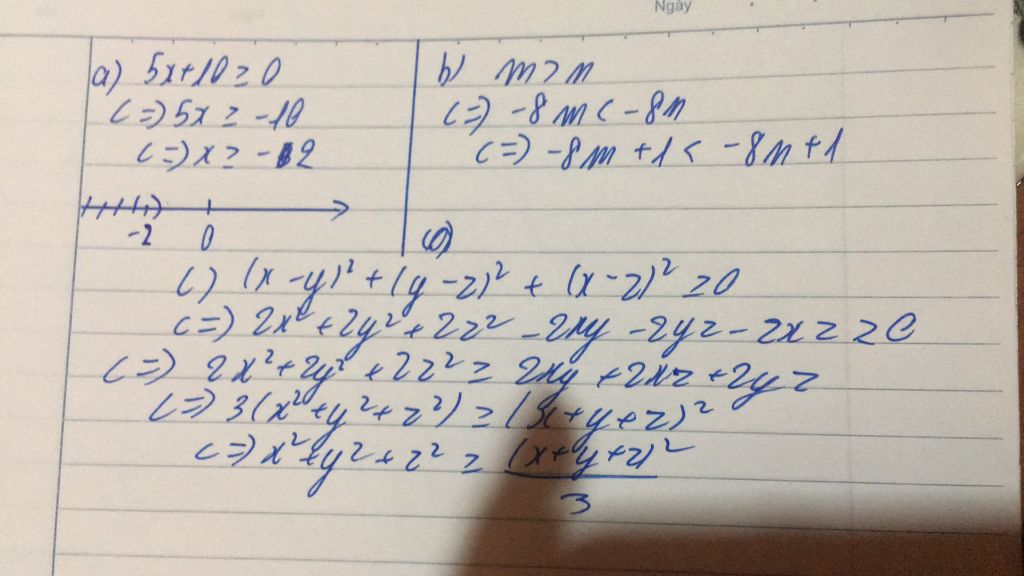 Ngày
a) 5x+10 ≥ 0
<=> 5x ≥ -10
<=> x ≥ -2
-2 0
b) m > n
<=> -8m < -8n
<=> -8m + 1 < -8n + 1
c)
c) (x-y)² + (y-z)² + (x-z)² ≥ 0
<=> 2x² + 2y² + 2z² - 2xy - 2yz - 2xz ≥ 0
<=> 2x² + 2y² + 2z² ≥ 2xy + 2xz + 2yz
<=> 3(x² + y² + z²) ≥ (x+y+z)²
<=> x² + y² + z² ≥ (x+y+z)²
3